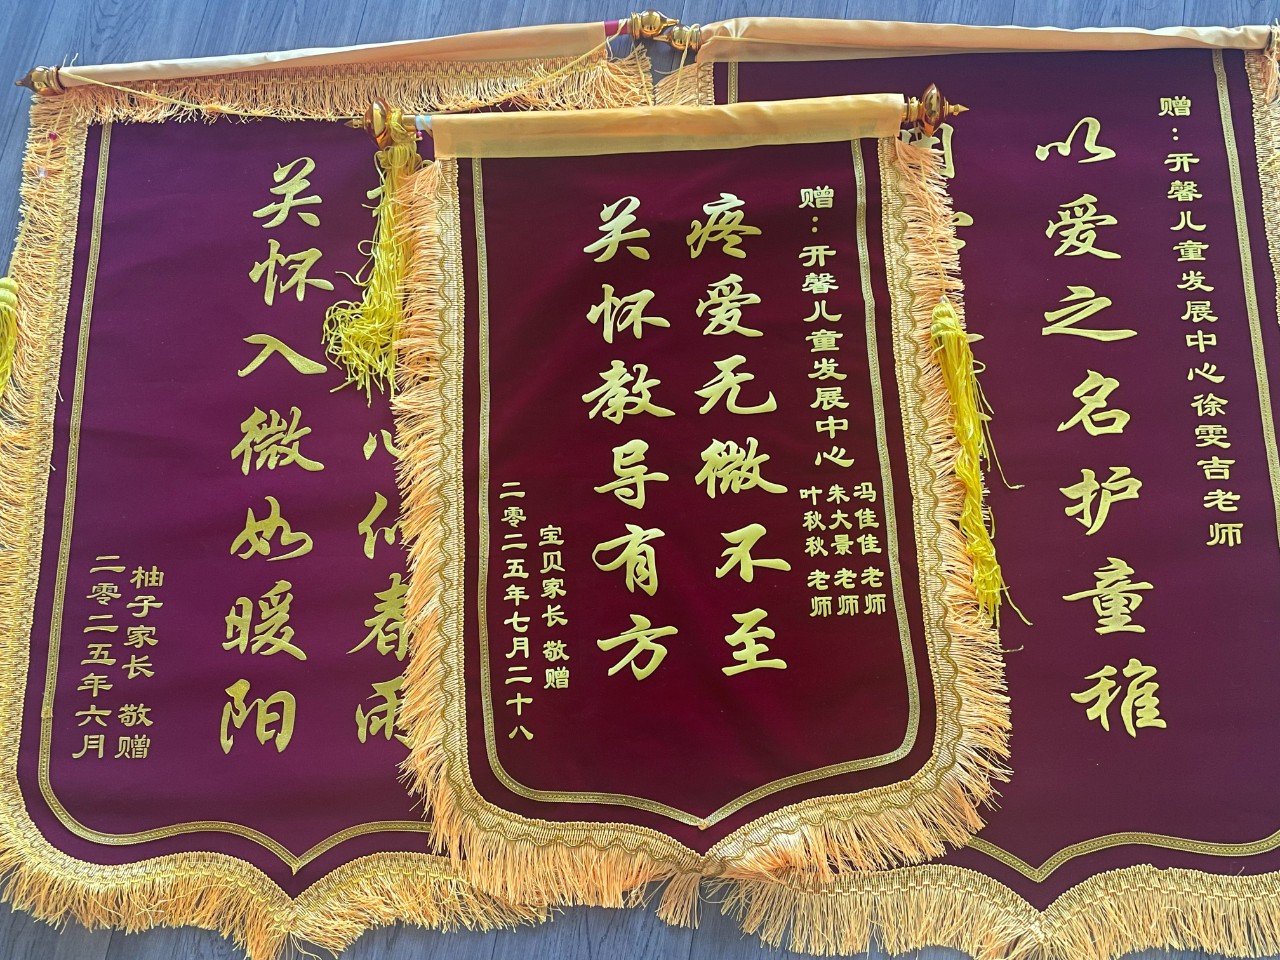 赠：开馨儿童发展中心徐雯吉老师
以爱之名护童稚
赠：开馨儿童发展中心
冯佳佳 老师
朱大景 老师
叶秋秋 老师
疼爱无微不至
关怀教导有方
宝贝家长 敬赠
二零二五年七月二十八
心似春雨
关怀入微如暖阳
柚子家长 敬赠
二零二五年六月